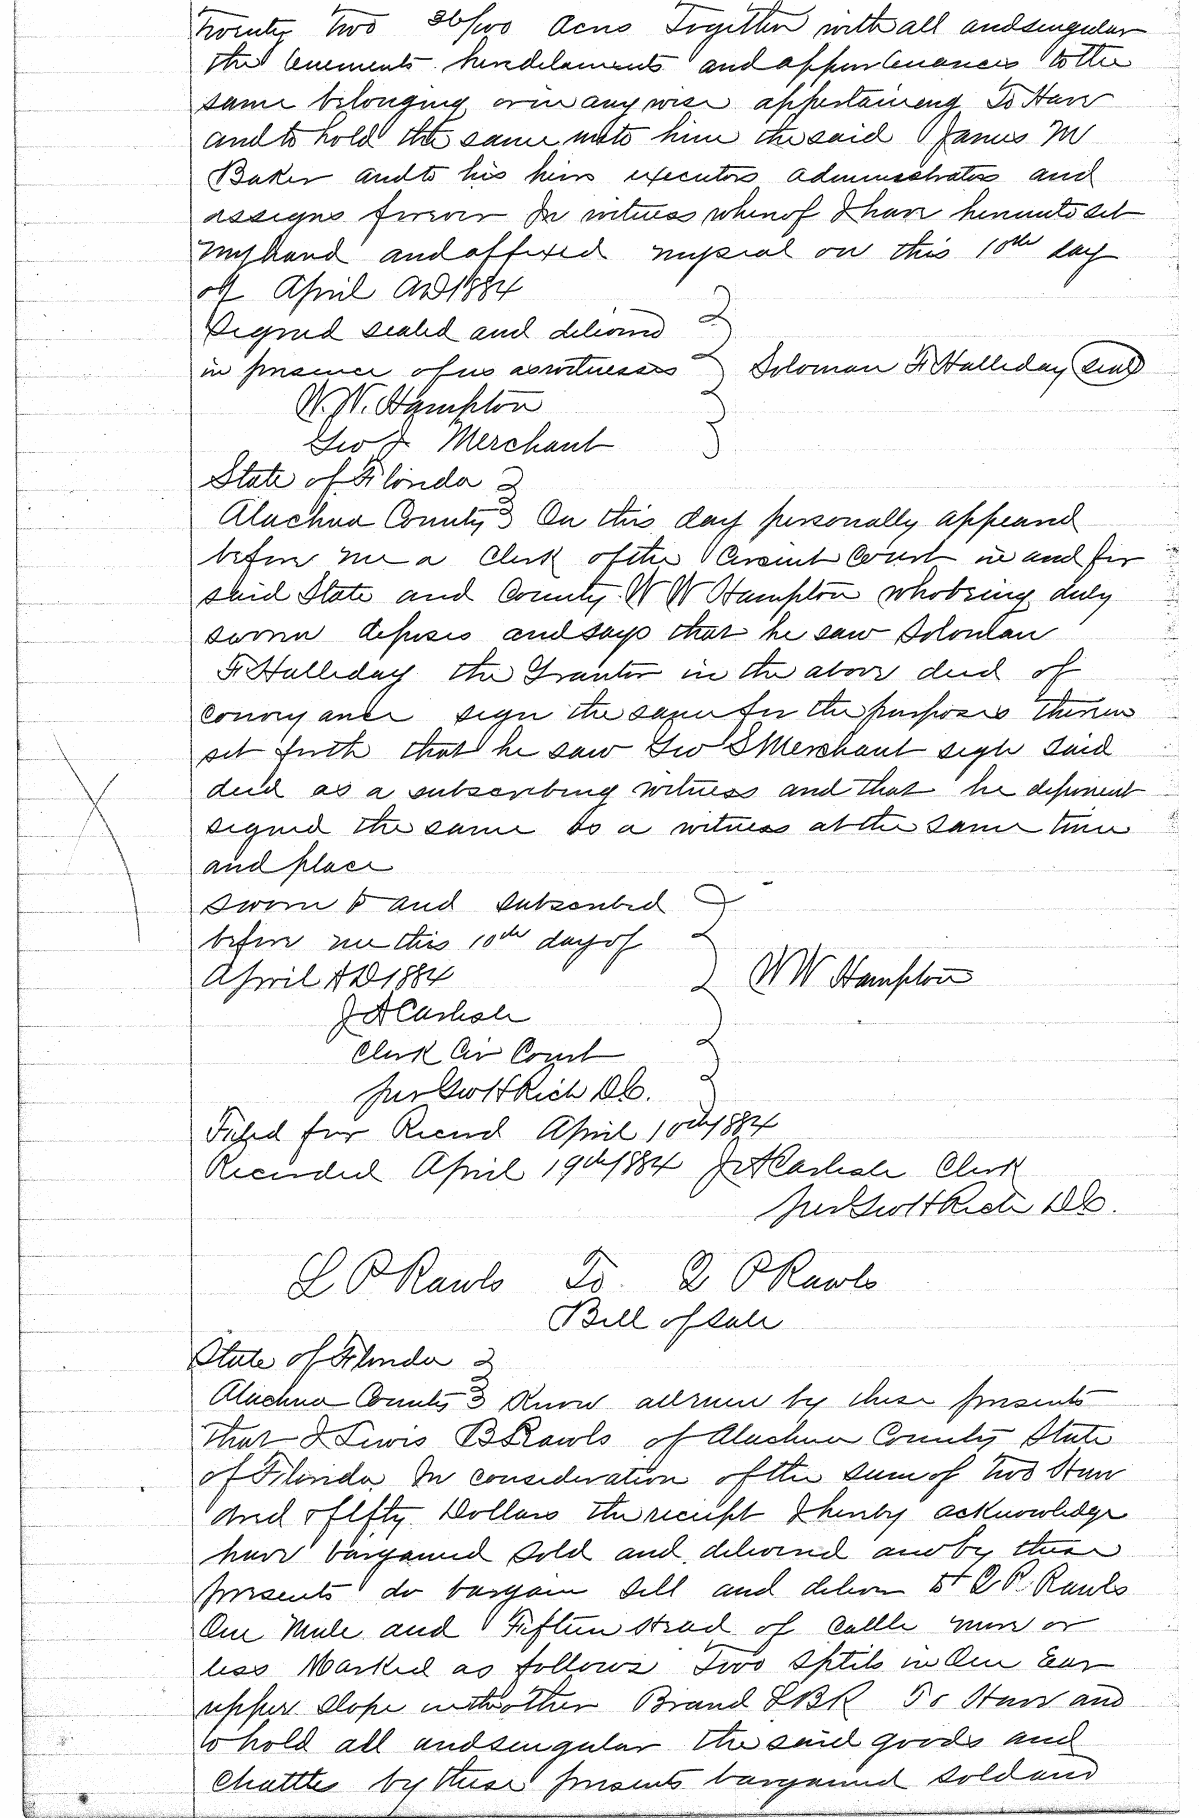 Twenty Two 36/100 Acres Together with all and singular
the tenements heredetaments and appurtenances to the
same belonging or in any wise appertaineng To Have
and to hold the same unto him the said James M
Baker and to his heirs executors administrators and
assigns forever In witness whereof I have hereunto set
my hand and affixed my seal on this 10th day
of April AD 1884
Signed sealed and delivered
in presence of us as witnesses Soloman F Halliday seal
W. W. Hampton
Geo J Merchant
State of Florida
Alachua County On this day personally appeared
before me a Clerk of the Circuit Court in and for
said State and County W W Hampton who being duly
sworn deposes and says that he saw Soloman
F Halliday the Grantor in the above deed of
conveyance sign the same for the purposes therein
set forth that he saw Geo S Merchant sign said
deed as a subscribing witness and that he deponent
signed the same as a witness at the same time
and place
Sworn to and subscribed
before me this 10th day of
April AD 1884 W W Hampton
J A Carlisle
Clerk Cir Court
per Geo H Rich D.C.
Filed for Record April 10th 1884
Recorded April 19th 1884 J A Carlisle Clerk
per Geo H Rich D.C.
L P Rawls To Q P Rawls
Bill of Sale
State of Florida
Alachua County Know all men by these presents
that I Lewis B Rawls of Alachua County State
of Florida In consideration of the sum of Two Hun
dred & fifty Dollars the receipt I hereby acknowledge
have bargained sold and delivered and by these
presents do bargain sell and deliver to Q. P. Rawls
One Mule and Fifteen Head of Cattle more or
less Marked as follows Two Splits in One Ear
upper slope in the other Brand LBR To Have and
to hold all and singular the said goods and
Chattles by these presents bargained sold and